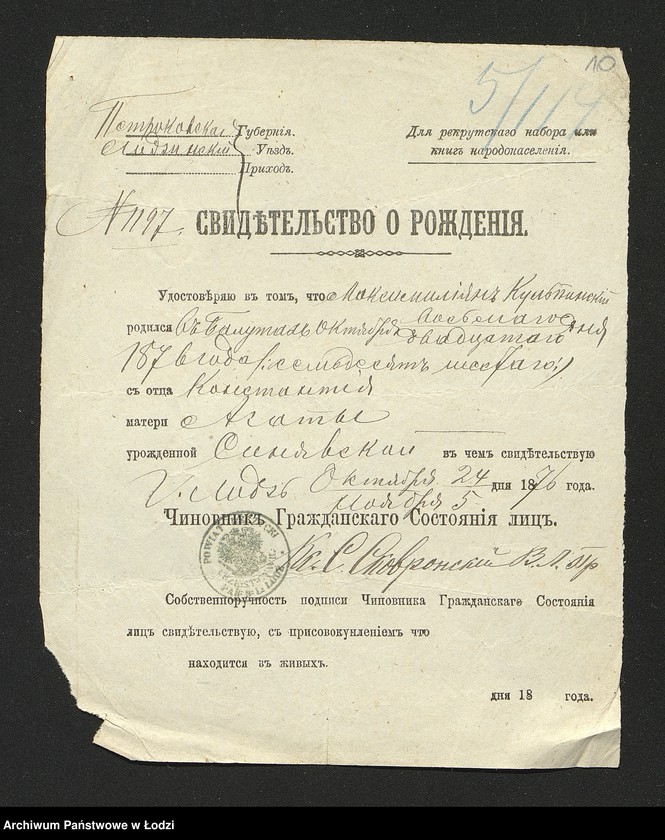 10
5/117
Петроковская Губернія.
Лодзинскій Уѣздъ.
Приходъ.
Для рекрутскаго набора или
книгъ народонаселенія.
№ 1197.
СВИДѢТЕЛЬСТВО О РОЖДЕНІЯ.
Удостовѣряю въ томъ, что Максимиліянъ Кульпинскій
родился въ Балутахъ октября восьмаго двадцатаго дня
1876 года (: семьдесятъ шестаго :)
съ отца Константія
матери Агаты
урожденной Синявской въ чемъ свидѣтельствую
Г. Лодзь Октября 24 дня 1876 года.
Ноября 5
Чиновникъ Гражданскаго Состоянія лицъ.
Кс. С. Сковронскій В. Л. Пр
POWIAT ŁODZKI
Собственноручность подписи Чиновника Гражданскаго Состоянія
лицъ свидѣтельствую, съ присовокупленіемъ что
находится въ живыхъ.
дня 18 года.
Archiwum Państwowe w Łodzi